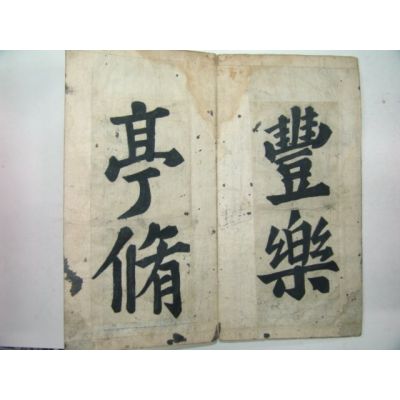 豐樂
亭脩